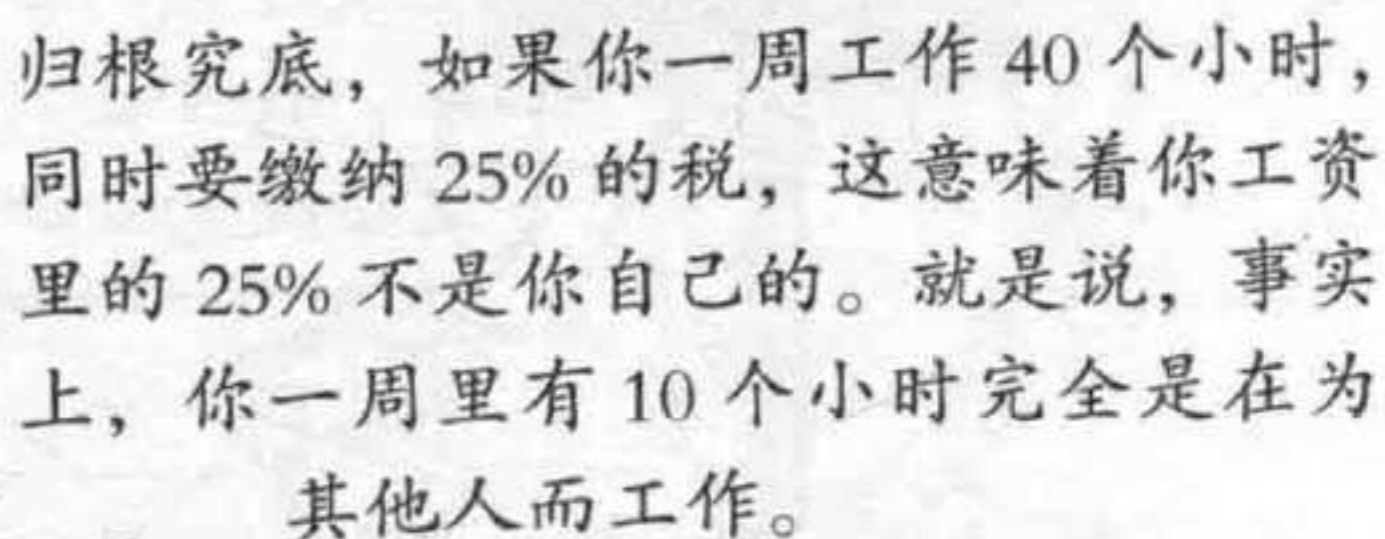 归根究底，如果你一周工作 40 个小时，
同时要缴纳 25% 的税，这意味着你工资
里的 25% 不是你自己的。就是说，事实
上，你一周里有 10 个小时完全是在为
其他人而工作。